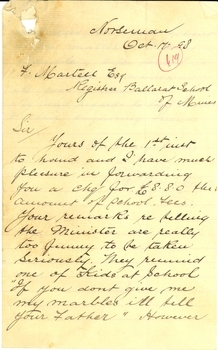 Norseman
Oct 17 – 98
F. Martell Esq
Register Ballarat School
of Mines
Sir
Yours of the 1st inst
to hand and I have much
pleasure in forwarding
you a chq for £8.8.0 the
amount of School fees.
Your remark's re telling
the Minister are really
too funny to be taken
seriously. They remind
one of Kids at School
"If you dont give me
my marbles ill tell
your Father" However